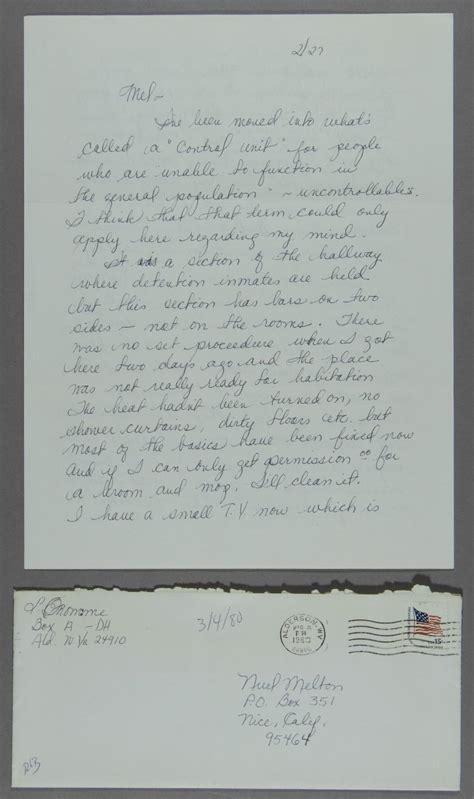 2/27
Mel-
I've been moved into what's
called a "Control unit" for people
who are unable to function in
the general population" - uncontrollables.
I think that that term could only
apply here regarding my mind.
It is a section of the hallway
where detention inmates are held
but this section has bars on two
sides - not on the rooms. There
was no set proceedure when I got
here two days ago and the place
was not really ready for habitation
The heat hadn't been turned on, no
shower curtains, dirty floors etc. but
most of the basics have been fixed now
and if I can only get permission for
a broom and mop. I'll clean it.
I have a small T.V. now which is
Box A -DH
Ald. W Va 24910
3/4/80
ALDERSON, WV
PM
15c
Melton
P.O. Box 351
Nice, Calif.
95464